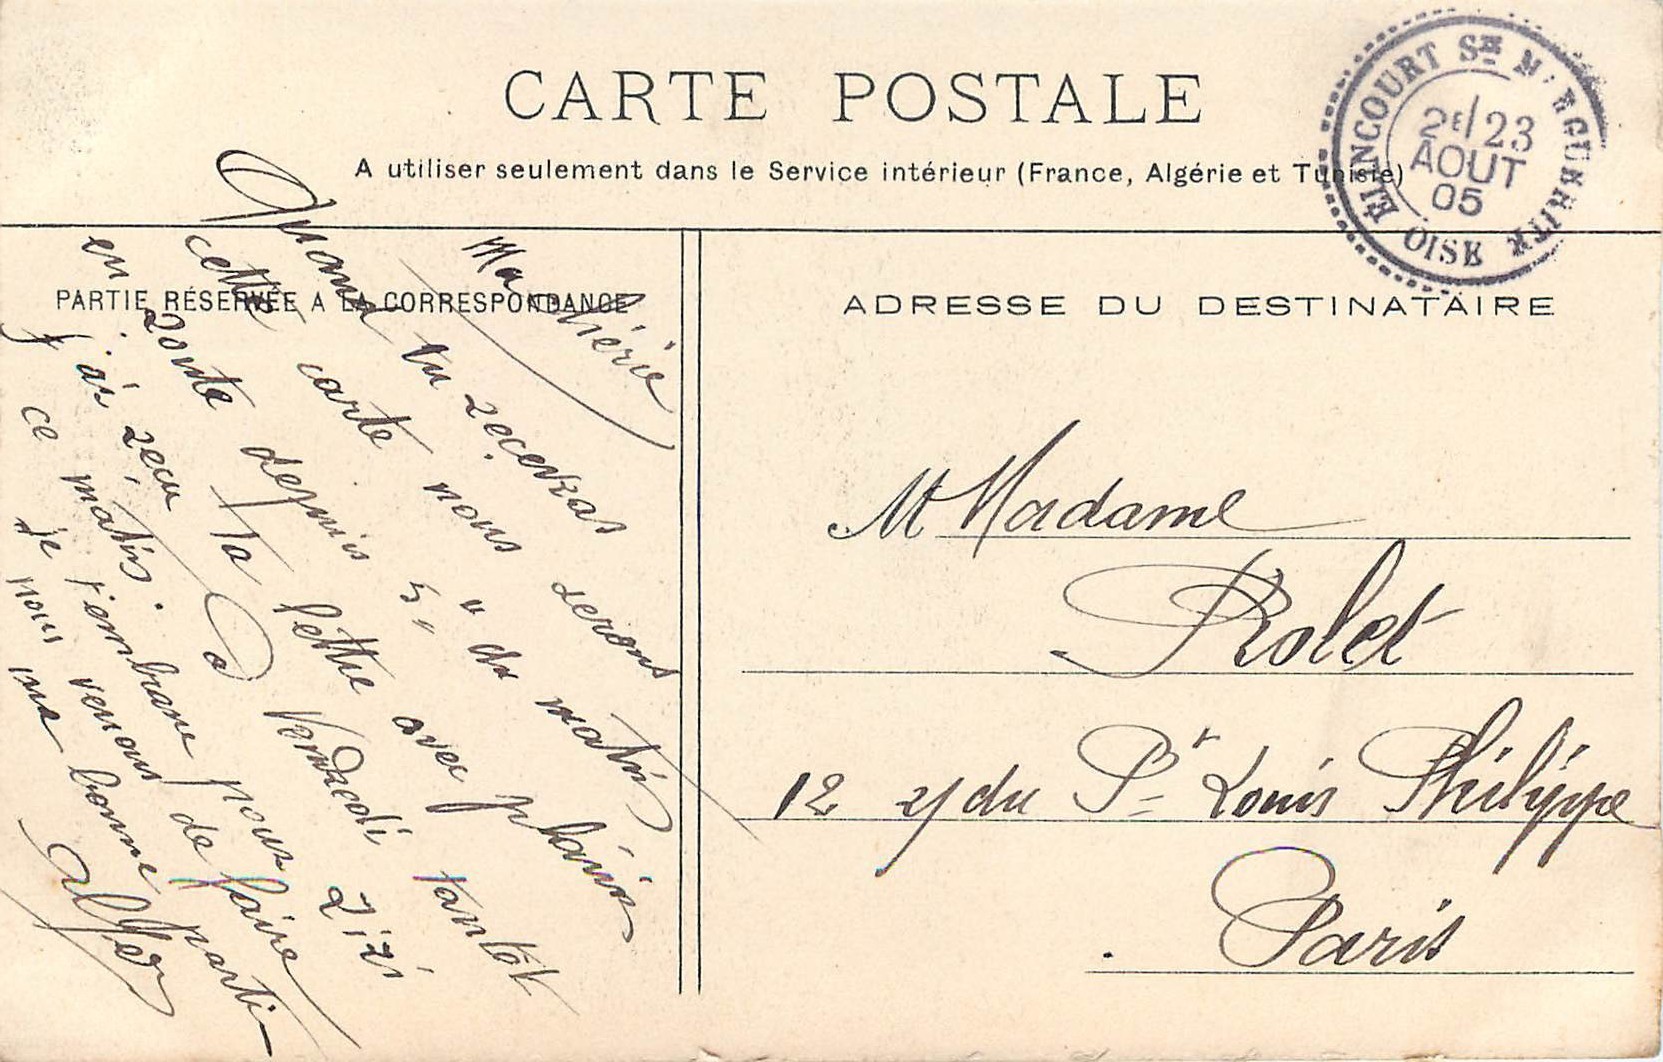 CARTE POSTALE
A utiliser seulement dans le Service intérieur (France, Algérie et Tunisie)
ÉLINCOURT STE MARGUERITE
2E/23
AOUT
05
OISE
PARTIE RÉSERVÉE A LA CORRESPONDANCE
ADRESSE DU DESTINATAIRE
Ma chérie
Quand tu recevras
cette carte nous serons
en route depuis 5 h du matin
j'ai reçu ta lettre avec plaisir
ce matin. à Vendredi tantôt
je t'embrasse pour
nous verrons de faire
une bonne parti
Mt Madame
Rolet
12 q du Pt Louis Philippe
Paris